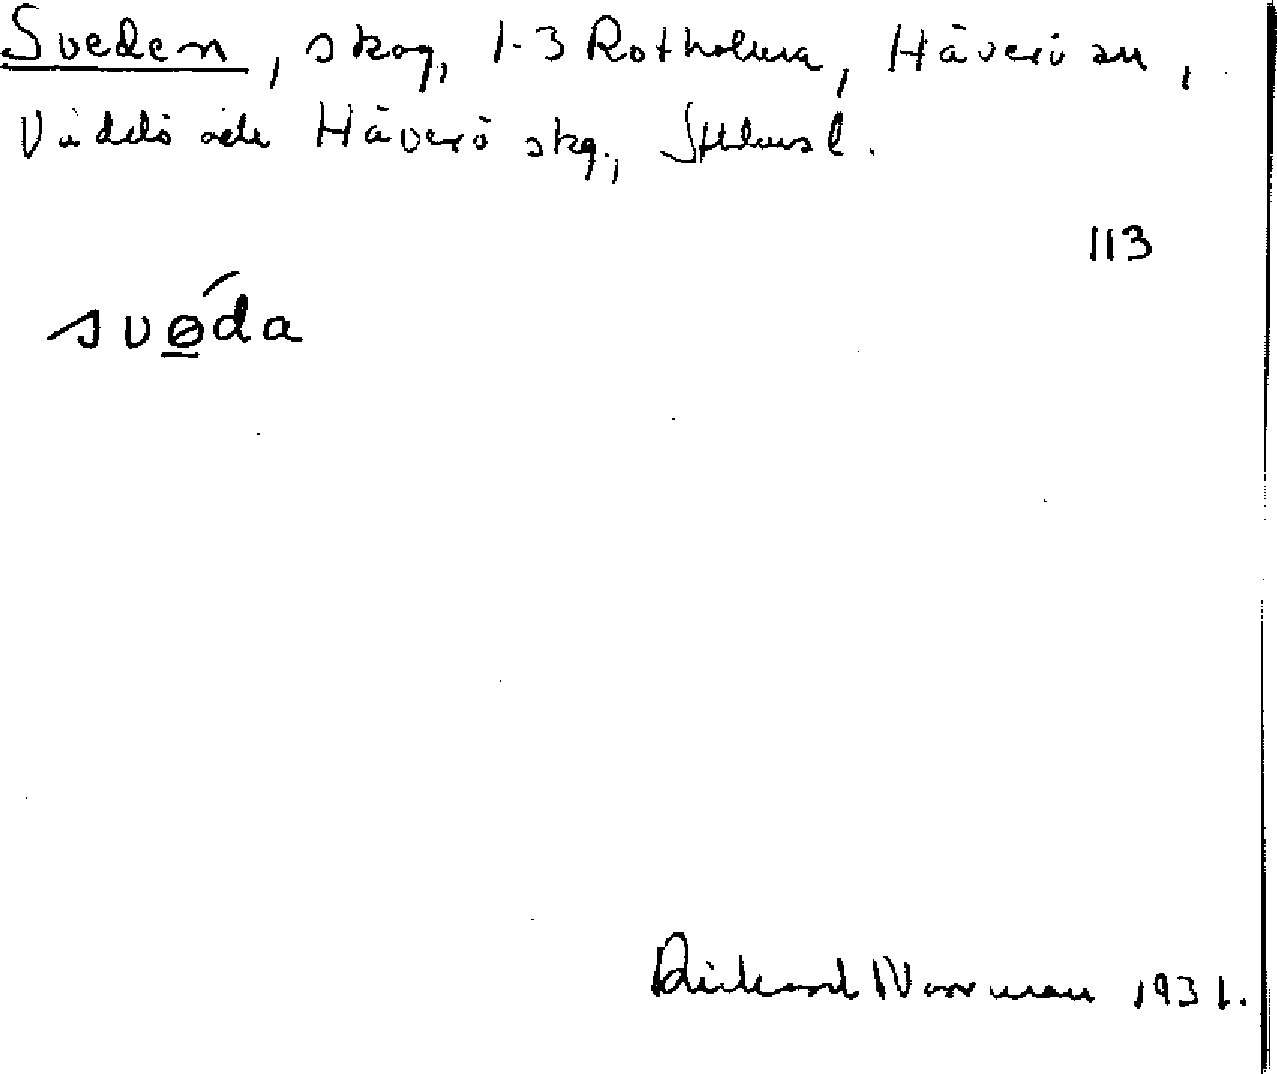 Sveden, skog, 1-3 Rotholma, Häverö sn,
Väddö och Häverö skg., Sthlms l.
113
svǿ̲da
Rickard Norrman 1931.